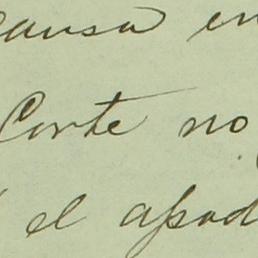 causa en
Corte no
el apod